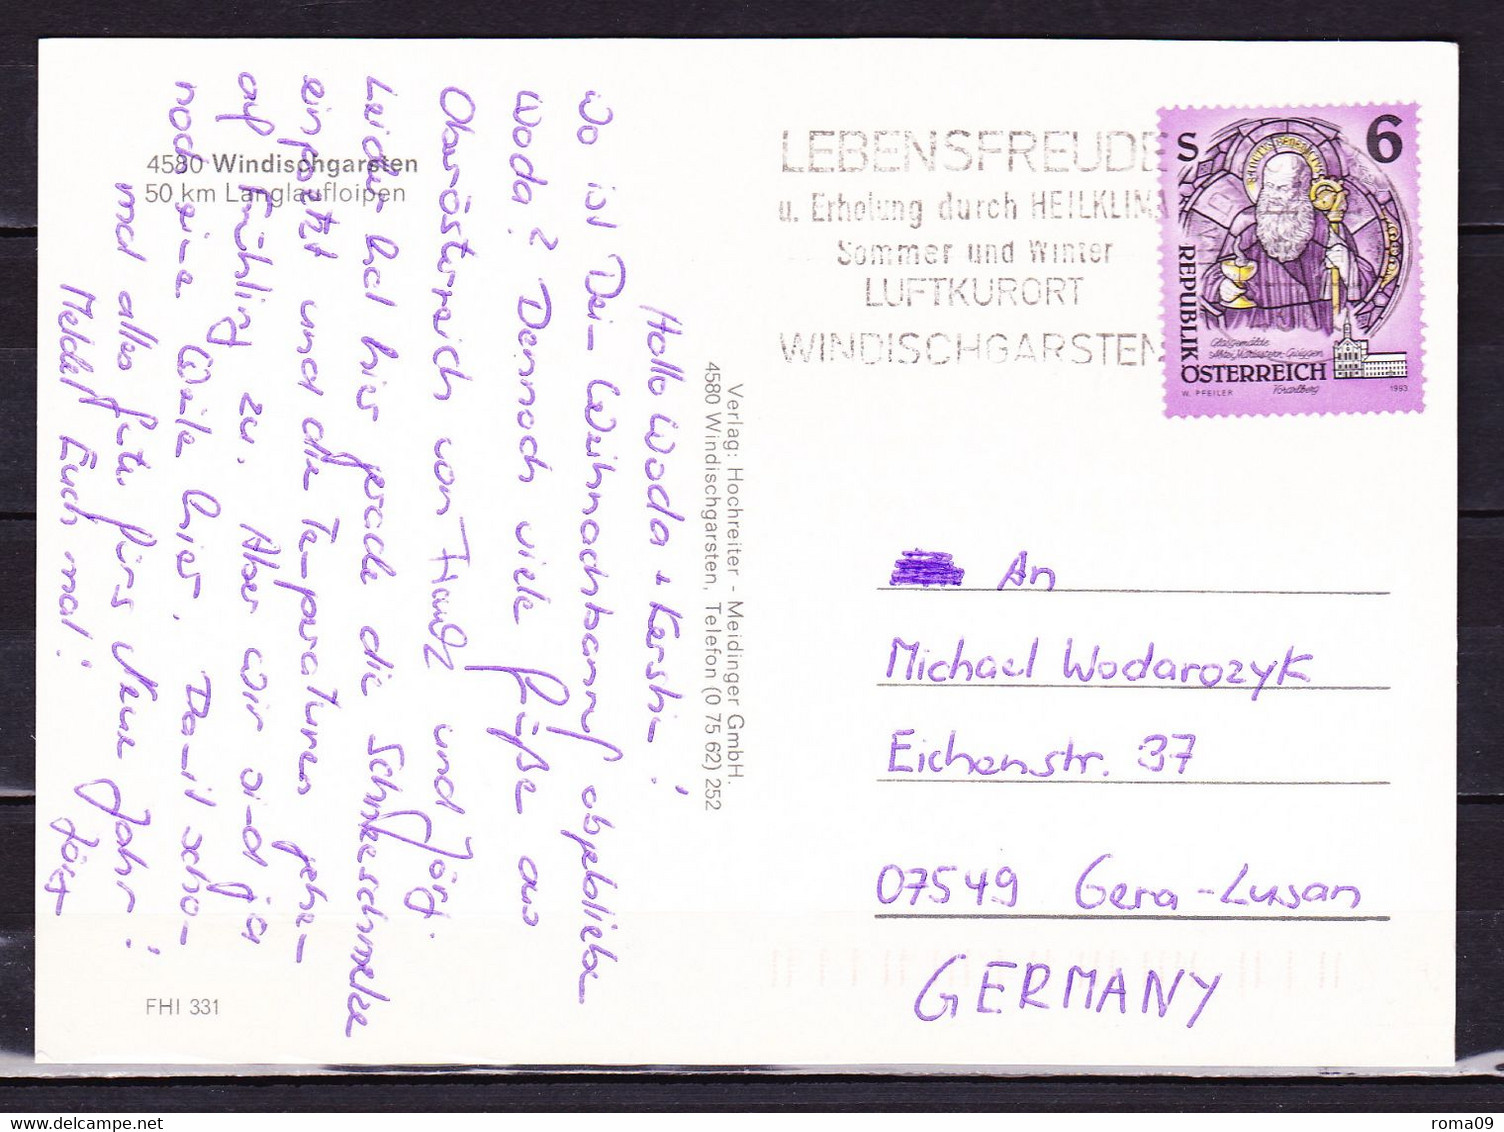 4580 Windischgarsten
50 km Langlaufloipen
Hallo Woda + Kerstin!
Wo ist Dein Weihnachtsbanf abgeblieben
Woda? Dennoch viele Grüße aus
Oberösterreich von Handz und Jörg.
Leider hat hier gerade die Schneeschmelze
eingesetzt und die Temperaturen gehen
auf Frühling zu. Aber wir sind ja
noch eine Weile hier. Damit schon
mal alles Gute fürs Neue Jahr!
Meldet Euch mal! Jörg
Verlag: Hochreiter - Meidinger GmbH.
4580 Windischgarsten, Telefon (0 75 62) 252
FHI 331
LEBENSFREUDE
u. Erholung durch HEILKLIMA
Sommer und Winter
LUFTKURORT
WINDISCHGARSTEN
S 6
REPUBLIK
ÖSTERREICH
Glasgemälde
Abtei Mariastern-Gwiggen
Vorarlberg
W. PFEILER 1993
An
Michael Wodarozyk
Eichenstr. 37
07549 Gera-Lusan
GERMANY
roma09